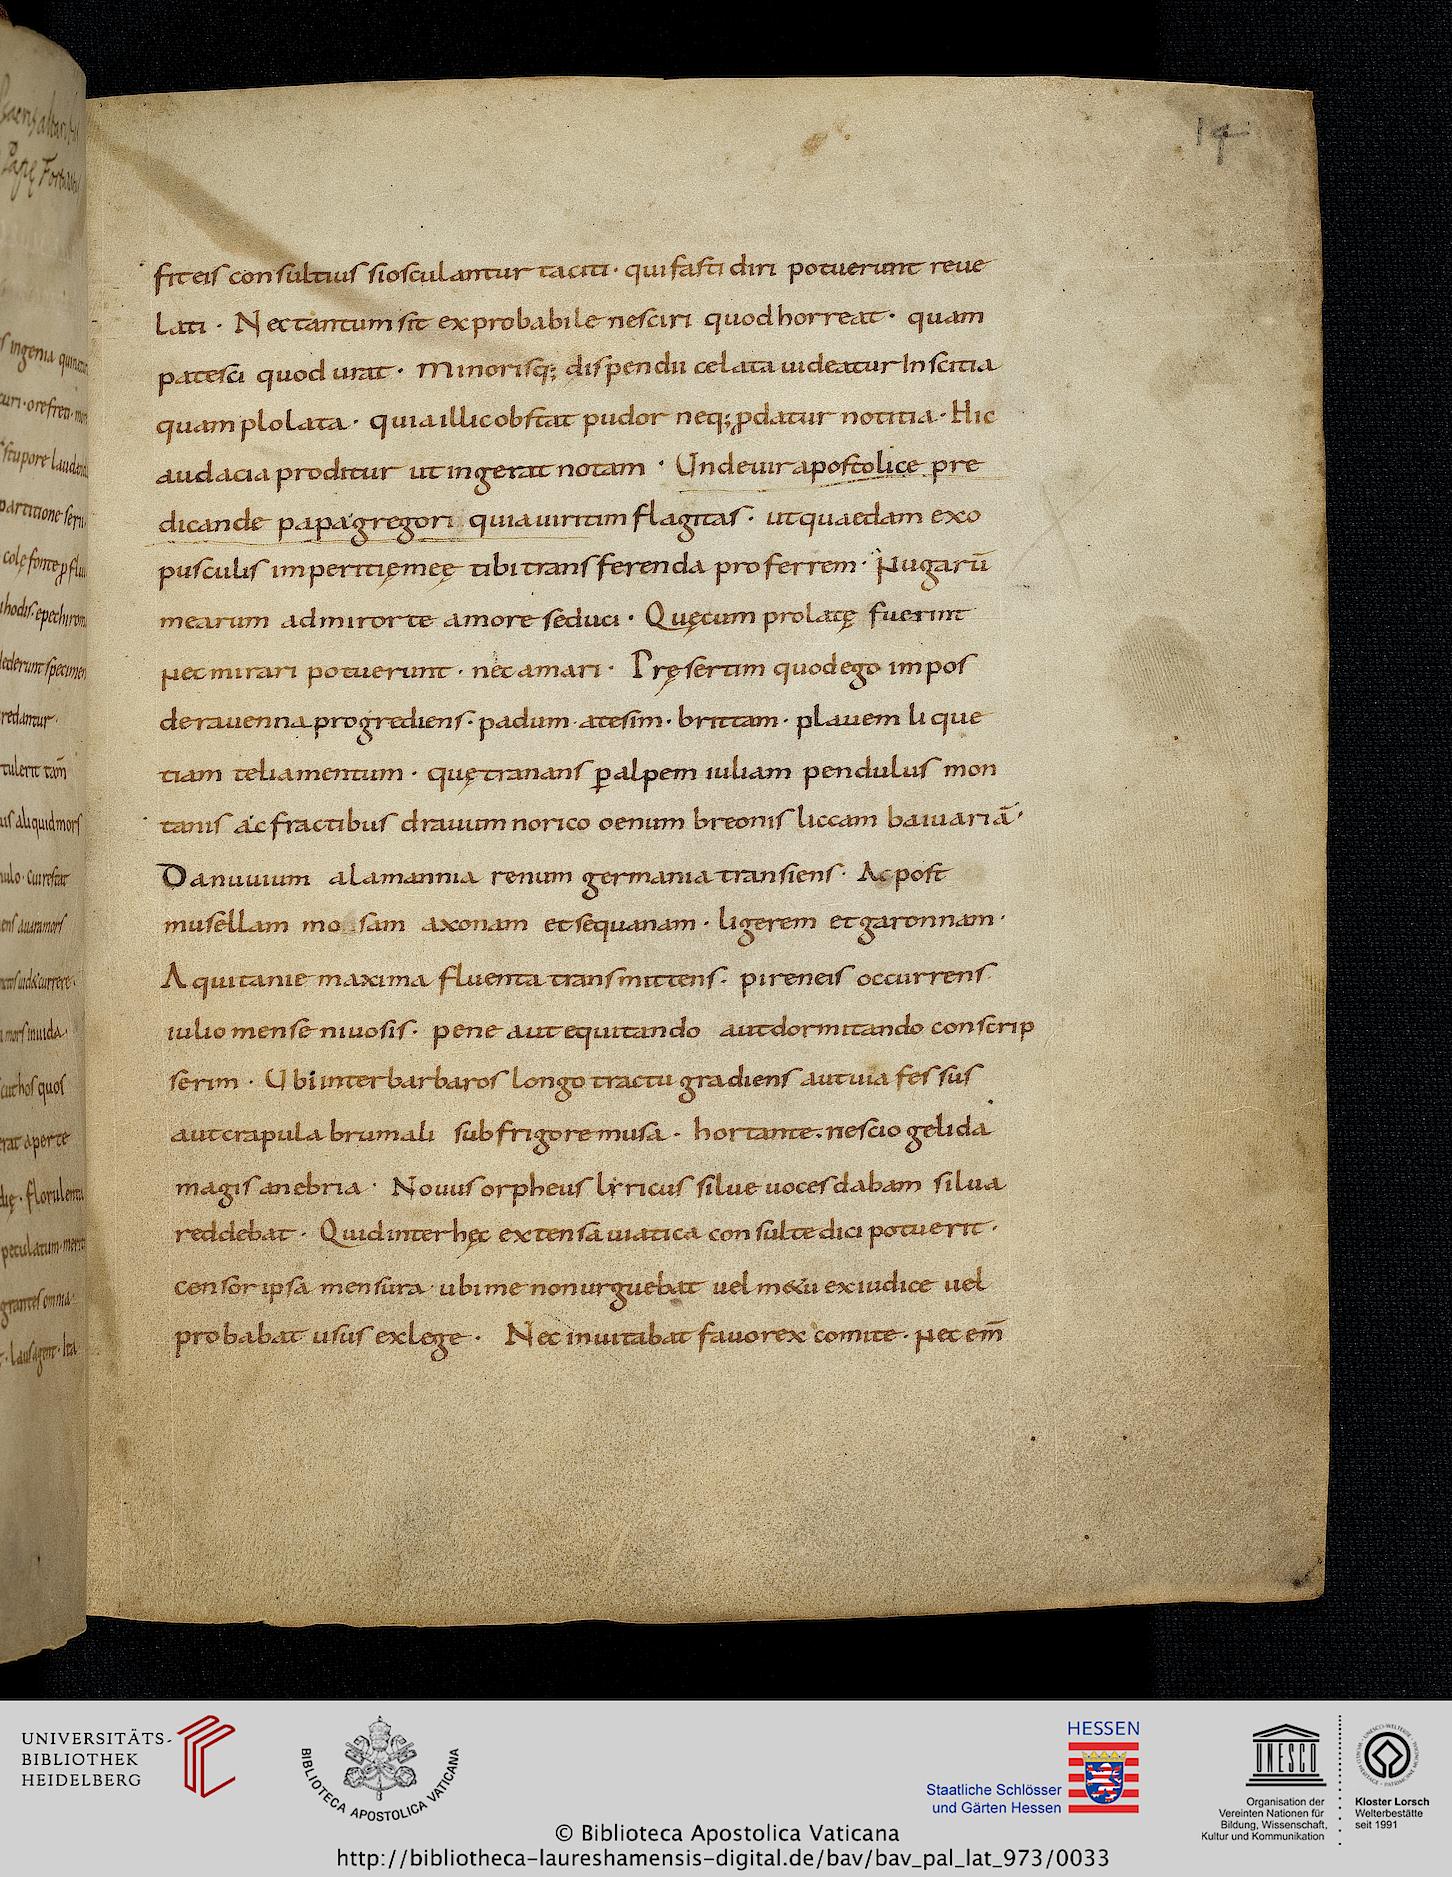 14
fit eis consultius si osculantur taciti · qui fasti diri potuerunt reue
lati · Nec tantum sit exprobabile nesciri quod horreat · quam
patesci quod urat · Minorisq; dispendii celata uideatur Inscitia
quam plolata · quia illic obstat pudor neq; ꝓdatur notitia · Hic
audacia proditur ut ingerat notam · Unde uir apostolice pre
dicande papa gregori quia uiritim flagitas · ut quaedam ex o
pusculis imperitię meę tibi transferenda proferrem · Nugarū
mearum admiror te amore seduci · Quę cum prolatę fuerint
nec mirari potuerunt · nec amari · Pręsertim quod ego impos
de rauenna progrediens · padum · atesim · brittam · plauem li que
tiam teliamentum · quę tranans ꝑ alpem iuliam pendulus mon
tanis acfractibus drauum norico oenum breonis liccam baiuariā ·
Danuuium alamannia renum germania transiens · Ac post
musellam mo sam axonam et sequanam · ligerem et garonnam ·
Aquitanie maxima fluenta transmittens · pireneis occurrens
iulio mense niuosis · pene aut equitando aut dormitando conscrip
serim · Ubi inter barbaros longo tractu gradiens aut uia fessus
aut crapula brumali sub frigore musa · hortante · nescio gelida
magis an ebria · Nouus orpheus lyricus silue uoces dabam silua
reddebat · Quid inter hęc extensa uiatica consulte dici potuerit ·
censor ipsa mensura ubi me non urguebat uel m&u ex iudice uel
probabat usus ex lege · Nec inuitabat fauor ex comite · nec em̄
UNIVERSITÄTS-
BIBLIOTHEK
HEIDELBERG
BIBLIOTECA APOSTOLICA VATICANA
HESSEN
Staatliche Schlösser
und Gärten Hessen
UNESCO
Organisation der
Vereinten Nationen für
Bildung, Wissenschaft,
Kultur und Kommunikation
Kloster Lorsch
Welterbestätte
seit 1991
© Biblioteca Apostolica Vaticana
http://bibliotheca-laureshamensis-digital.de/bav/bav_pal_lat_973/0033